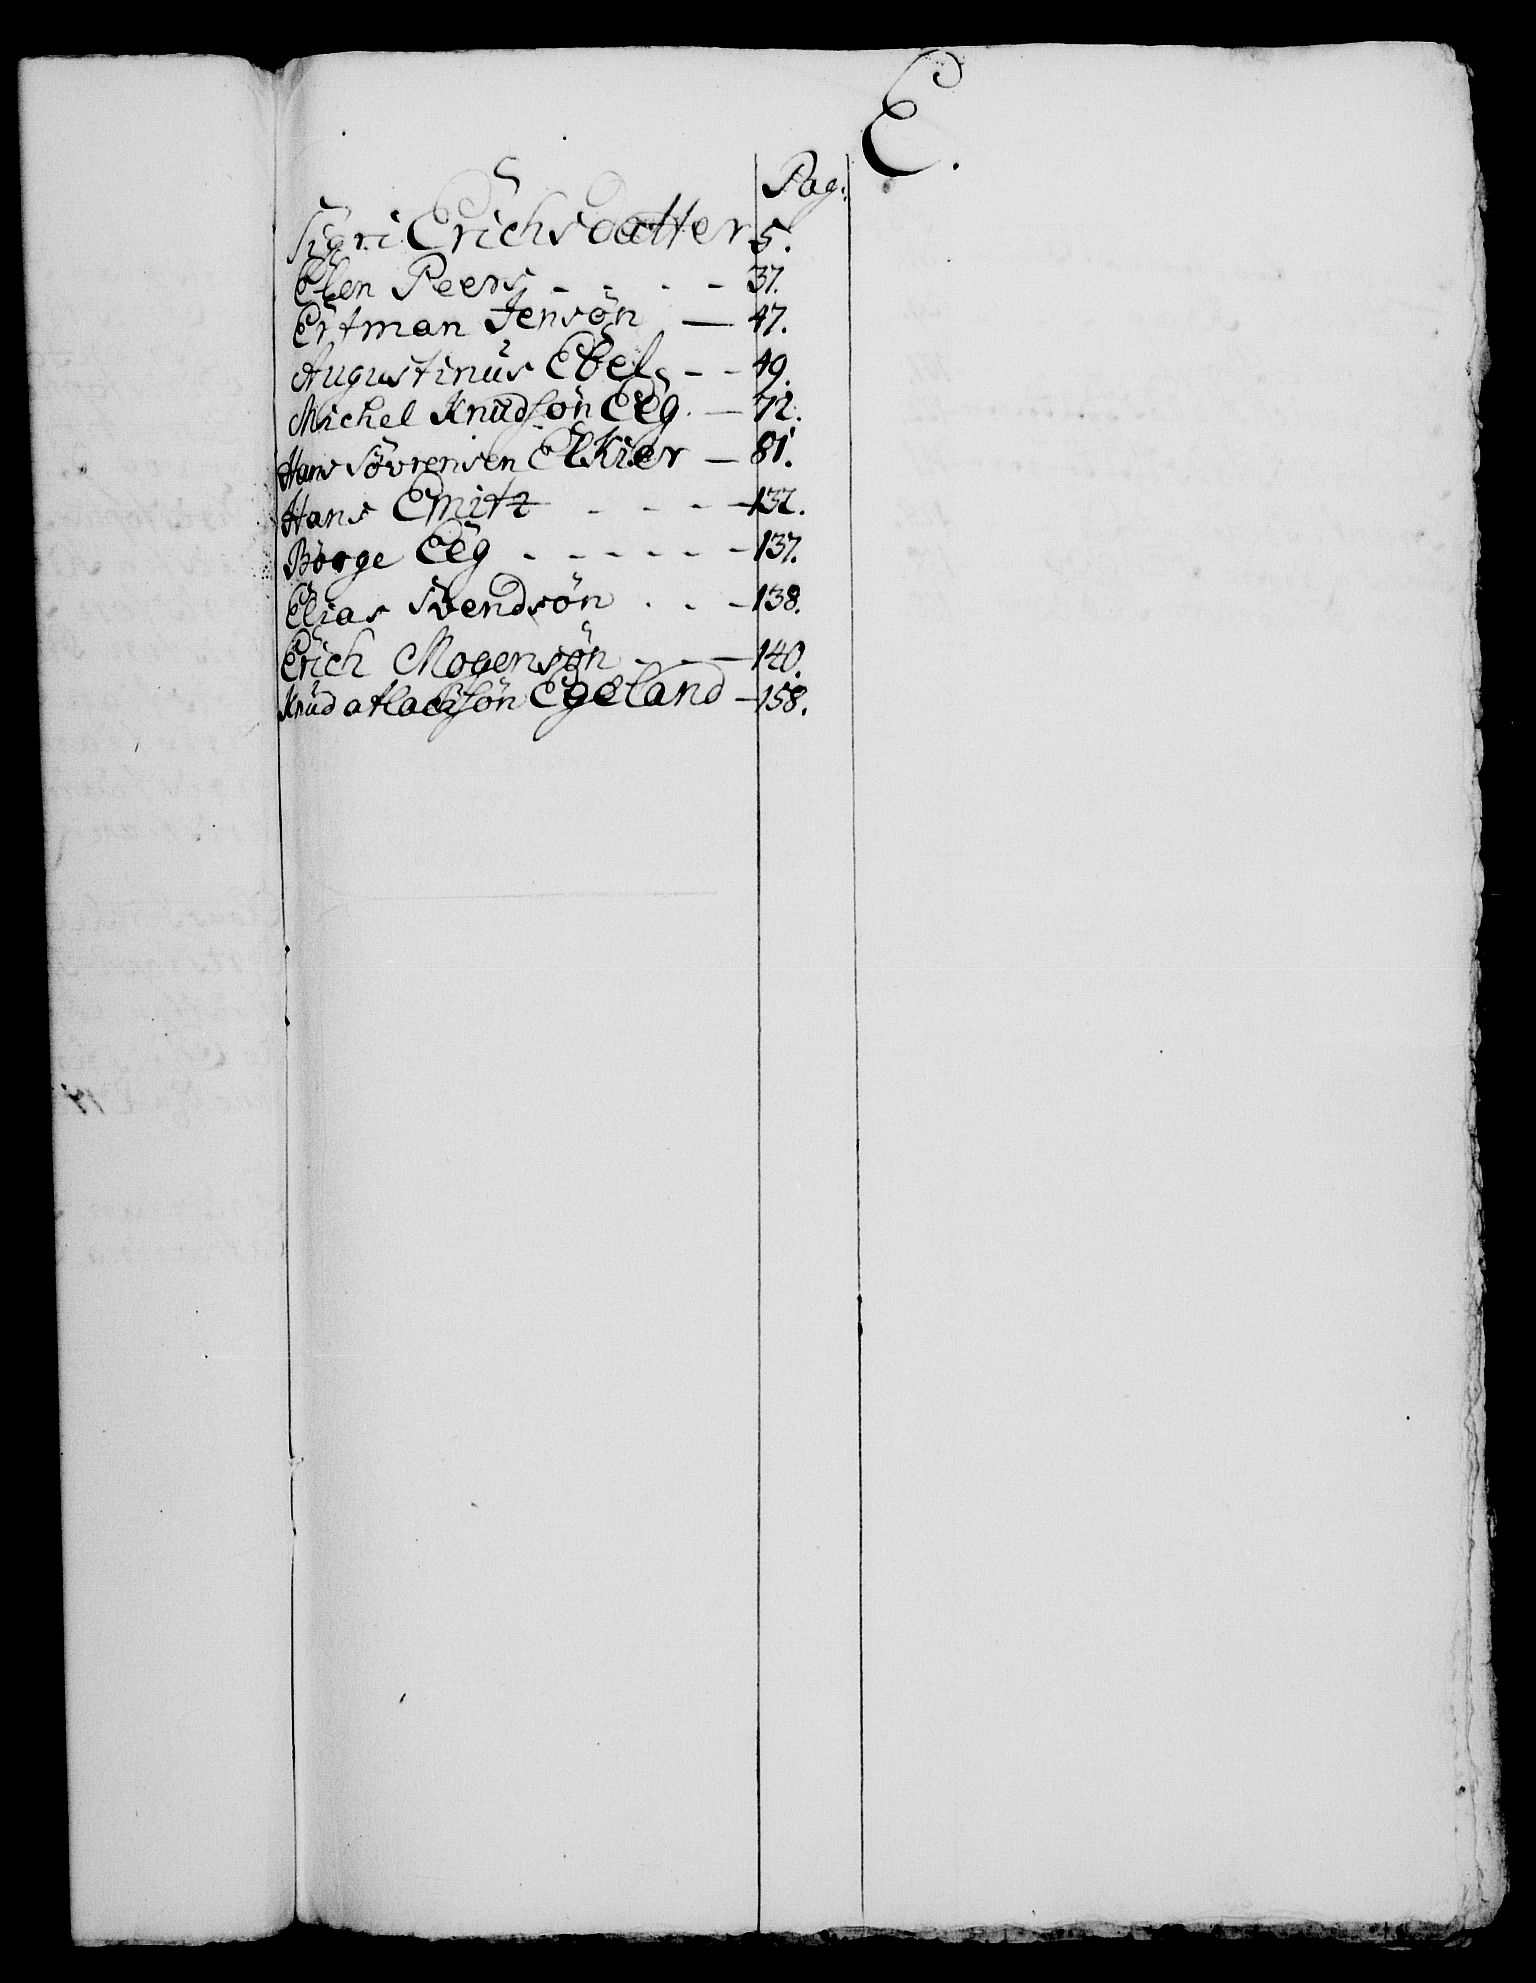 E.
Pag:
Sigri Erichsdatter 5.
Elen Peers - - - - 37.
Ertman Jensøn — 47.
Augustinus Ebel - - 49.
Michel Knudsøn Eeg. — 72.
Hans Sövrensen Elkier — 81.
Hans Emitz - - - - 132.
Börge Eeg - - - - - - 137.
Elias Svendsøn . . - 138.
Erich Mogensøn - - - 140.
Knud Egeland - 158.